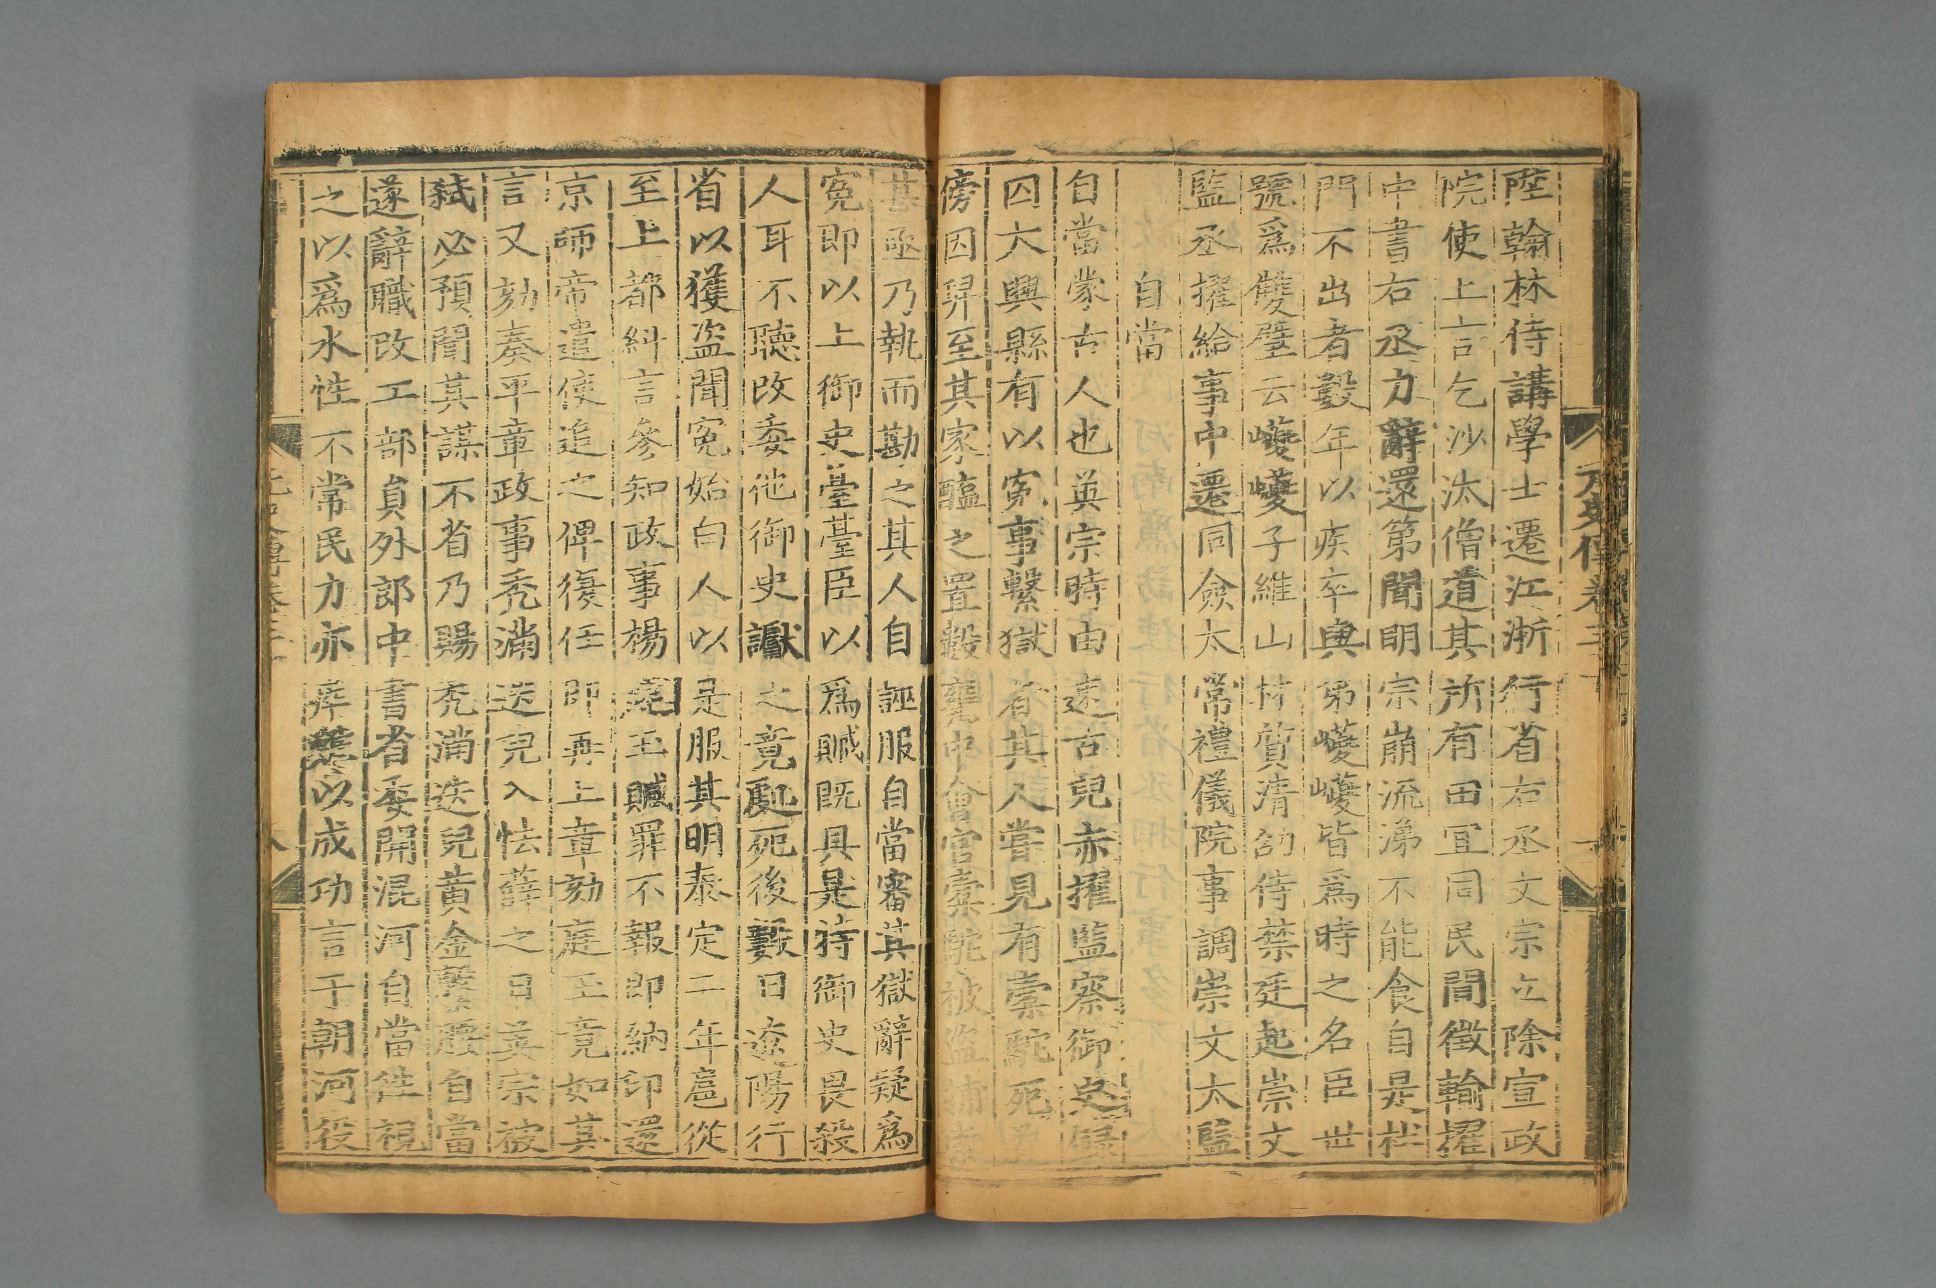 陞翰林侍講學士遷江浙行省右丞文宗立除宣政
院使上言乞沙汰僧道其所有田宜同民間徵輸擢
中書右丞力辭還第聞明宗崩流涕不能食自是杜
門不出者數年以疾卒與弟巙巙皆爲時之名臣世
號爲雙璧云巙巙子維山材質清劭侍禁廷起崇文
監丞擢給事中遷同僉太常禮儀院事調崇文太監
自當
自當蒙古人也英宗時由速古兒赤擢監察御史錄
囚大興縣有以冤事繫獄者其人嘗見有橐駝死
傍因舁至其家醢之置數甕中會官橐駝被盜捕
甚亟乃執而勘之其人自誣服自當審其獄辭疑爲
冤即以上御史臺臺臣以爲贓既具是特御史畏殺
人耳不聽改委他御史讞之竟處死後數日遼陽行
省以獲盜聞冤始白人以是服其明泰定二年扈從
至上都糾言參知政事楊廷玉贓罪不報即納印還
京師帝遣使追之俾復任即再上章劾廷玉竟如其
言又劾奏平章政事禿滿迭兒入怯薛之日英宗被
弒必預聞其謀不省乃賜禿滿迭兒黃金繫腰自當
遂辭職改工部員外郎中書省委開混河自當往視
之以爲水性不常民力亦瘁難以成功言于朝河役
元史 傳卷三十